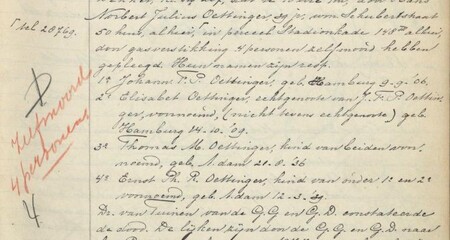 Norbert Julius Oettinger, 29 j., won. Schubertstraat
Tel 28769.
50 huis, alhier, in perceel Stadionkade 148 III alhier,
door gasverstikking 4 personen zelfmoord hebben
gepleegd. Hun namen zijn resp.
1e Johann F. P. Oettinger, geb. Hamburg 9-9-'06.
2e Elisabet Oettinger, echtgenote van J. F. P. Oettin-
ger, voornoemd, (niet tevens echtgenote) geb.
Hamburg 14-10-'09.
Zelfmoord
4 personen
3e Thomas M. Oettinger, kind van beiden voor-
noemd, geb. A'dam 21-8-'36
4e Ernst Ph. R. Oettinger, kind van onder 1e en 2e
voornoemd, geb. A'dam 12-3-'39
4
Dr. van Tuinen van de G.G. en G.D. constateerde
de dood. De lijken zijn door de G.G. en G.D. naar